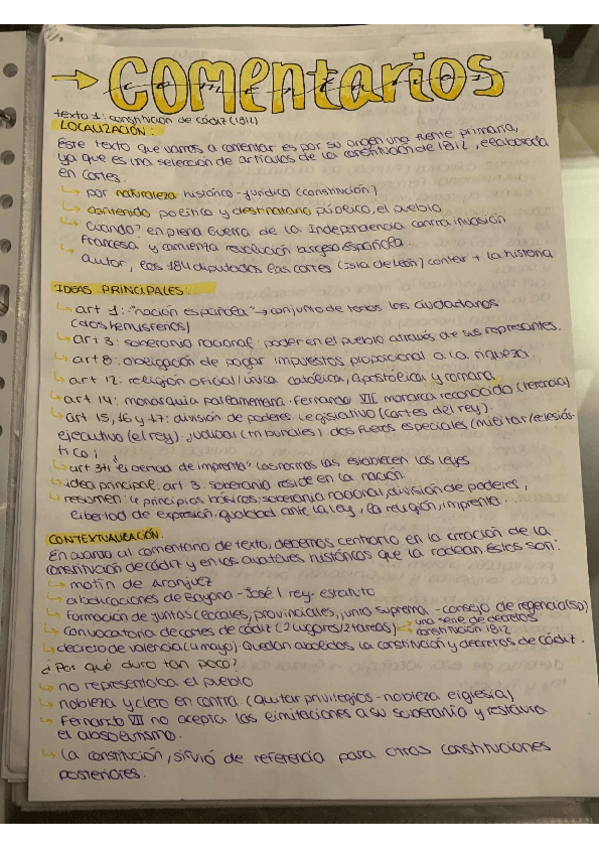 → comentarios
comentarios
texto 1: constitución de Cádiz (1812)
LOCALIZACIÓN:
Este texto que vamos a comentar es por su origen una fuente primaria,
ya que es una selección de artículos de la constitución de 1812, elaborada
en cortes.
↳ por naturaleza histórico-jurídico (constitución)
↳ contenido político y destinatario público, el pueblo
↳ cuando? en plena Guerra de la Independencia contra invasión
francesa y comienza revolución burguesa española.
↳ autor, los 184 diputados las cortes (isla de león) contar + la historia
IDEAS PRINCIPALES:
↳ art 1: "nación española" → conjunto de todos los ciudadanos
(2 dos hemisferios)
↳ art 3: soberanía nacional: poder en el pueblo através de sus represantes.
↳ art 8: obligación de pagar impuestos proporcional a la riqueza.
↳ art 12: religión oficial/única católica, apostólica y romana
↳ art 14: monarquía parlamentaria. Fernando VII monarca reconocido (herencia)
↳ art 15, 16 y 17: división de poderes legislativo (cortes del rey).
ejecutivo (el rey). judicial (tribunales) dos fueros especiales (militar/eclesiás-
tico);
↳ art 371 "liberdad de imprenta" las normas las establecen las leyes
↳ idea principal: art 3. soberanía reside en la nación.
↳ resumen: 4 principios básicos: soberanía nacional, división de poderes,
libertad de expresión, igualdad ante la ley, la religión, imprenta...
CONTEXTUALIZACIÓN.
En cuanto al comentario de texto, debemos centrarlo en la creación de la
constitución de cádiz y en los avatares históricos que la rodean. Estos son:
↳ motín de Aranjuez
↳ abdicaciones de Bayona - José I rey - estatuto
↳ formación de juntas (locales, provinciales, junta suprema - consejo de regencia (5p)
↳ convocatoria de cortes de cádiz (2 lugares/2 tareas) una serie de decretos
constitución 1812
↳ decreto de valencia (4 mayo) quedan abolidos la constitución y decretos de cádiz.
¿Por qué duro tan poco?
↳ no representaba el pueblo
↳ nobleza y clero en contra (quitar privilegios - nobleza e iglesia)
↳ Fernando VII no acepta las limitaciones a su soberanía y restaura
el absolutismo.
↳ la constitución, sirvió de referencia para otras constituciones
posteriores.